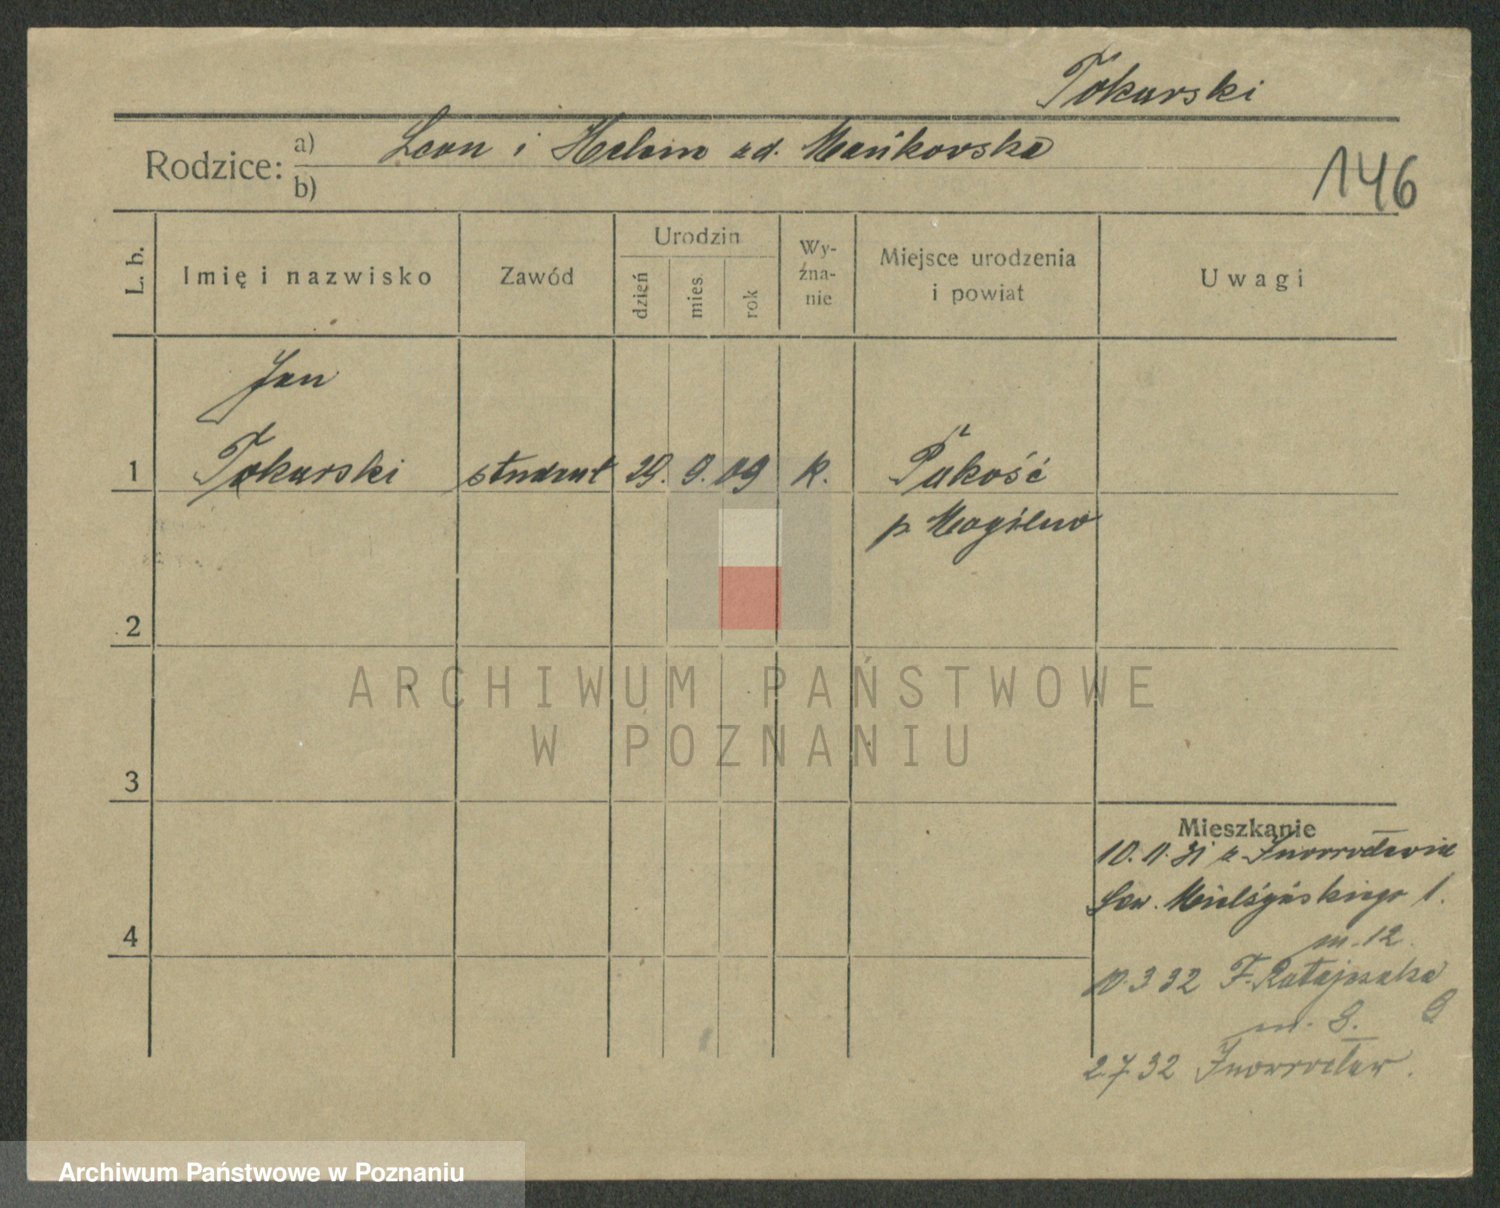 Tokarski
Rodzice: a) Leon i Helena zd. Mańkowska
b)
146
L. b.
Imię i nazwisko
Zawód
Urodzin
dzień
mies.
rok
Wy-
zna-
nie
Miejsce urodzenia
i powiat
Uwagi
Jan
1 Tokarski student 29. 9. 09 k. Pakość
p. Mogilno
2
3
4
Mieszkanie
10. 11. 31 z Inowrocławia
Sew. Mielżyńskiego 1.
m. 12.
10. 3 32 F. Ratajczaka 9
m. 8.
2.7.32 Inowrocław.
ARCHIWUM PAŃSTWOWE
W POZNANIU
Archiwum Państwowe w Poznaniu